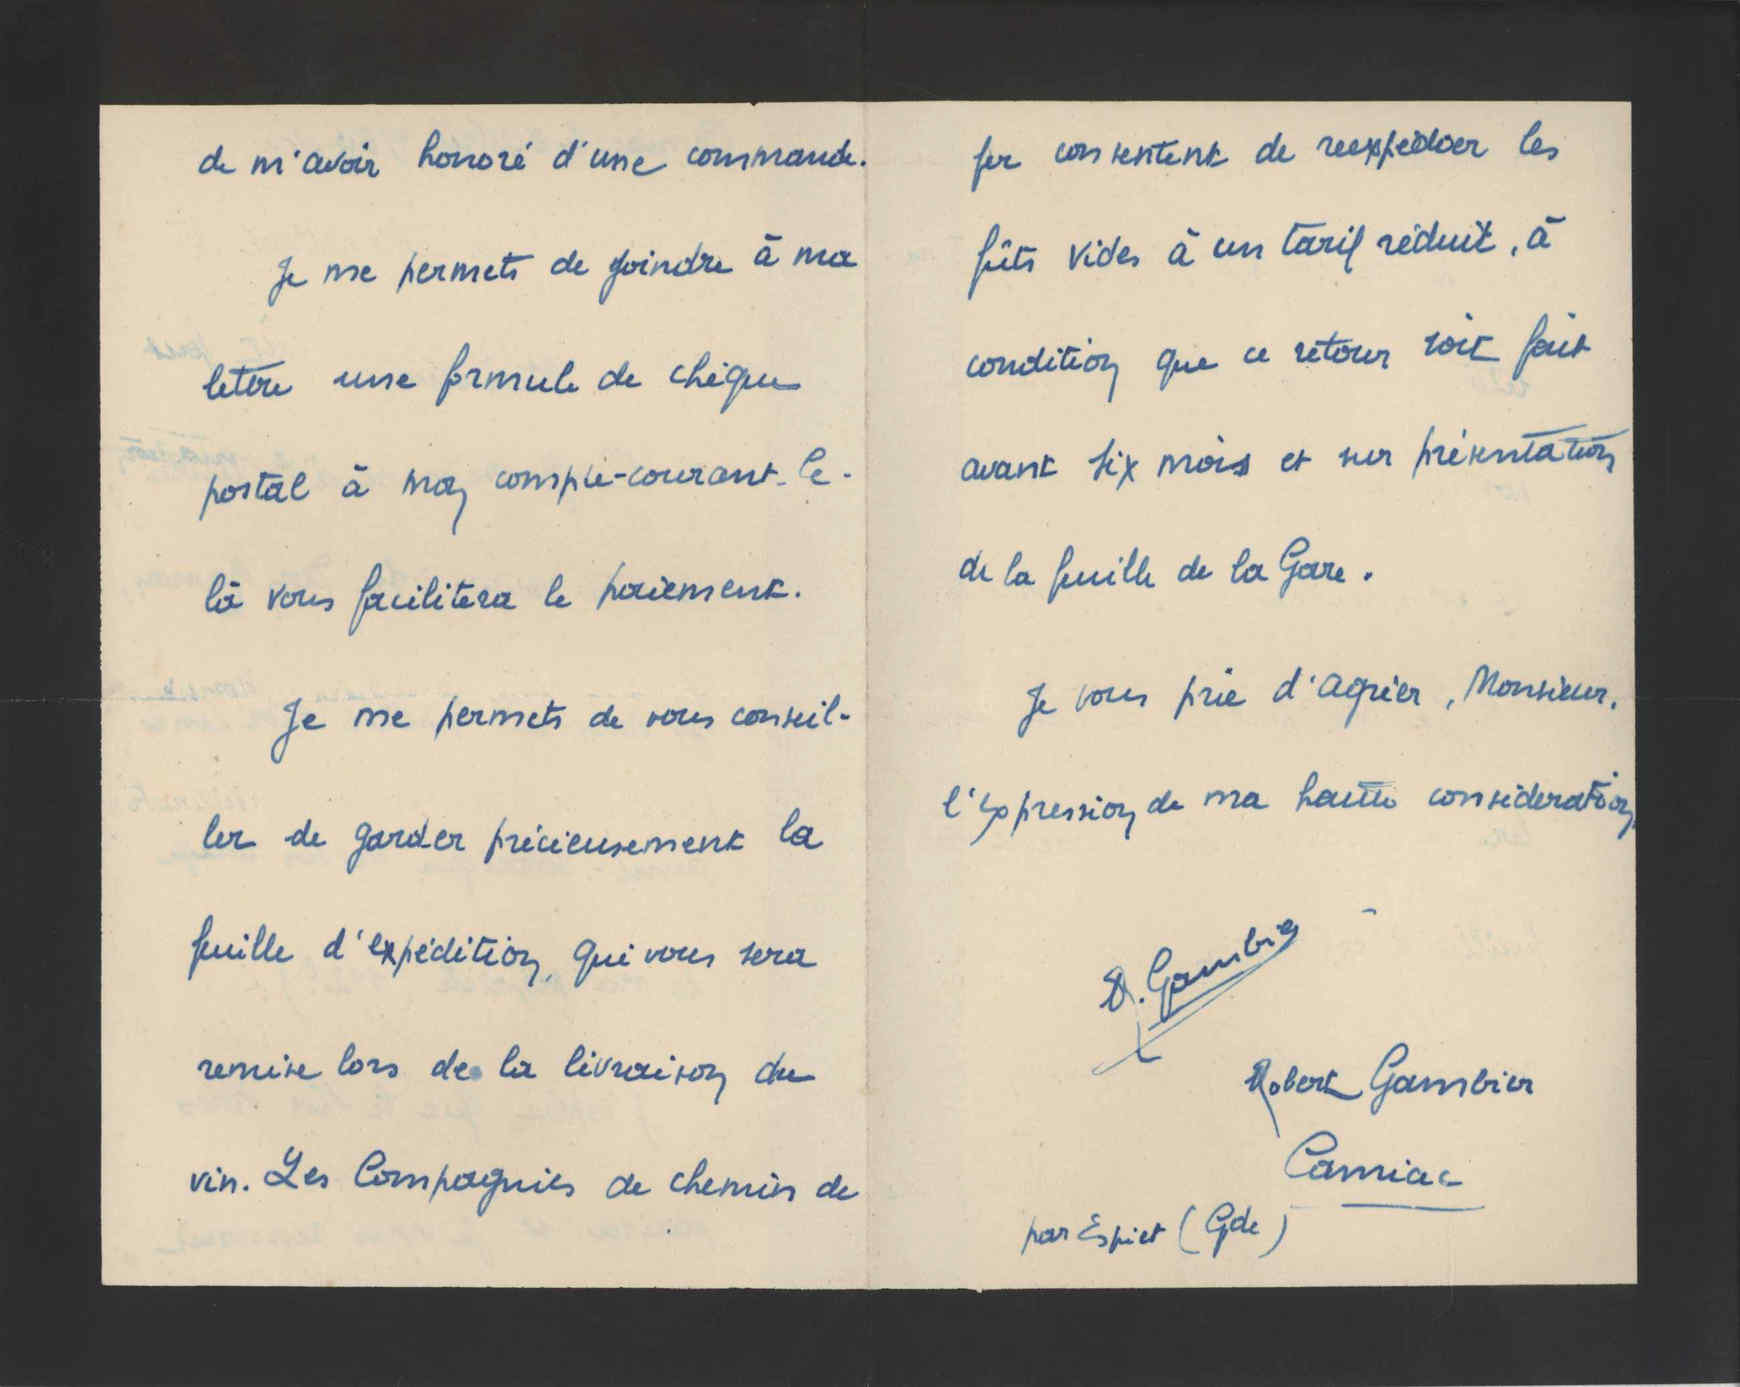 de m'avoir honoré d'une commande.
Je me permets de joindre à ma
lettre une formule de chèque
postal à mon compte-courant. Ce-
là vous facilitera le paiement.
Je me permets de vous conseil-
ler de garder précieusement la
feuille d'expédition, qui vous sera
remise lors de la livraison du
vin. Les Compagnies de chemin de
fer consentent de reexpédier les
fûts vides à un tarif réduit, à
condition que ce retour soit fait
avant six mois et sur présentation
de la feuille de la Gare.
Je vous prie d'agréer, Monsieur,
l'expression de ma haute consideration
R. Gambier
Robert Gambier
Camiac
par Espiet (Gde)